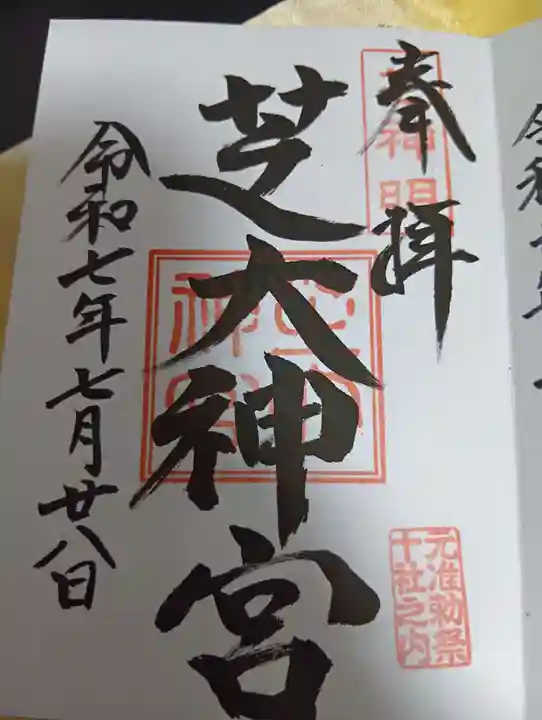 奉拝
神明
芝大神宮
令和七年七月廿八日
元准勅祭
十社之内
令和七年